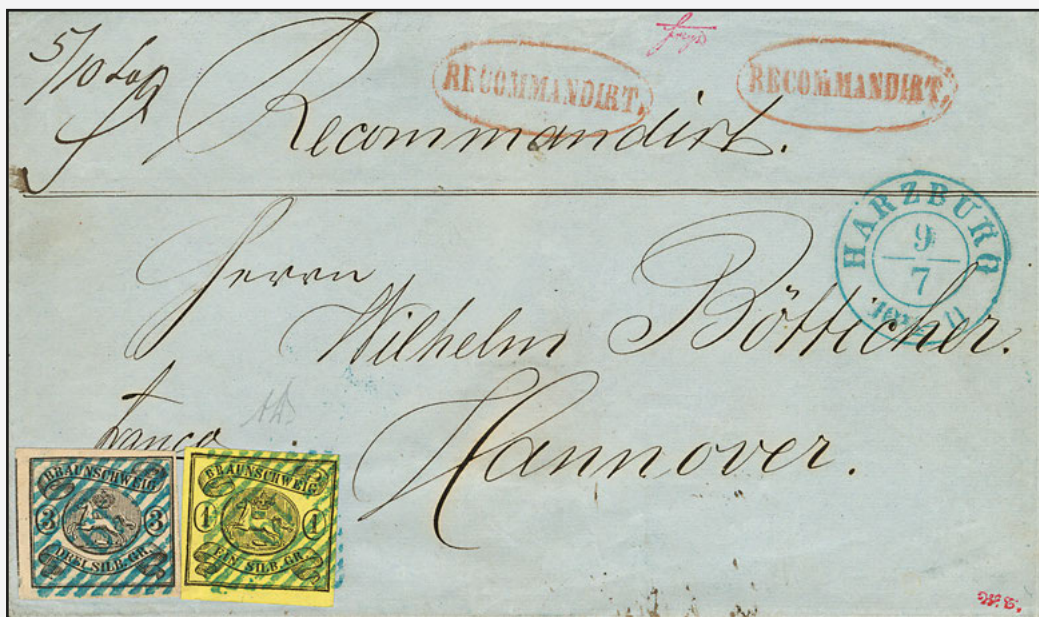 5/10 Lth
Recommandirt.
RECOMMANDIRT.
RECOMMANDIRT.
HARZBURG
9
7
Herrn
Wilhelm Bötticher.
franco
Hannover.
BRAUNSCHWEIG
3 3
DREI SILB. GR.
BRAUNSCHWEIG
1 1
EIN SILB. GR.